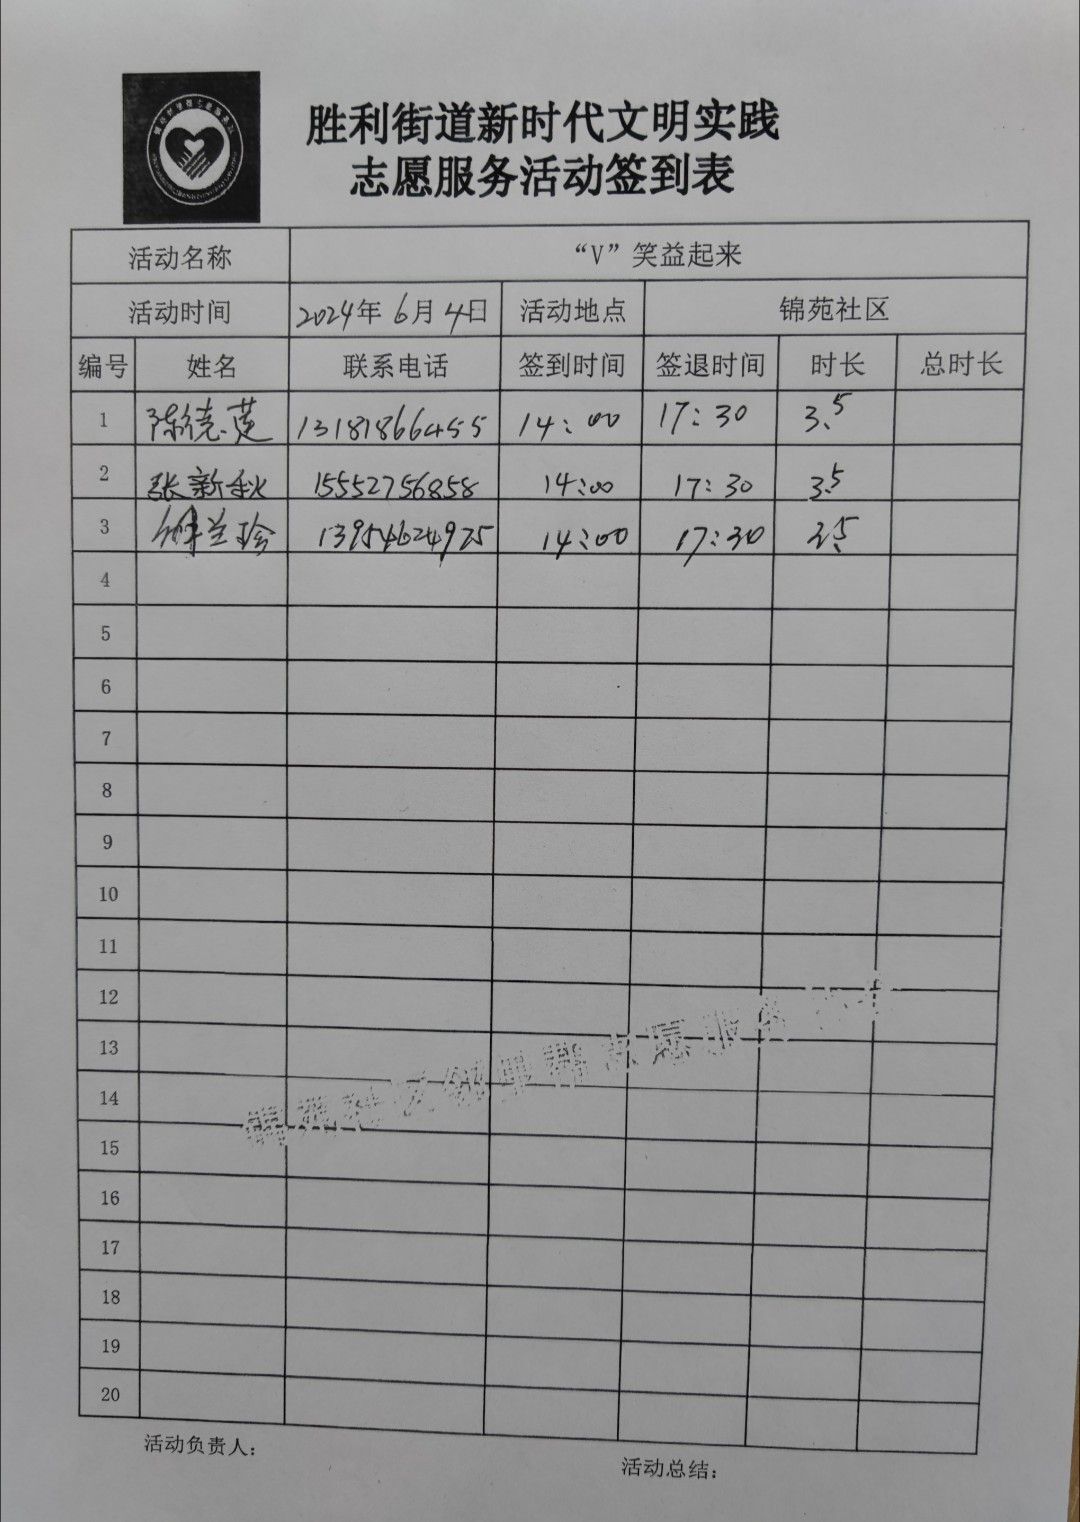 胜利街道新时代文明实践
志愿服务活动签到表
活动名称 “V”笑益起来
活动时间 2024年 6月 4日 活动地点 锦苑社区
编号 姓名 联系电话 签到时间 签退时间 时长 总时长
1 陈德英 13181866455 14:00 17:30 3.5
2 张新秋 15552756858 14:00 17:30 3.5
3 兰珍 13954624925 14:00 17:30 3.5
4
5
6
7
8
9
10
11
12
13
14
15
16
17
18
19
20
锦苑社区邻里帮志愿服务
活动负责人:
活动总结: